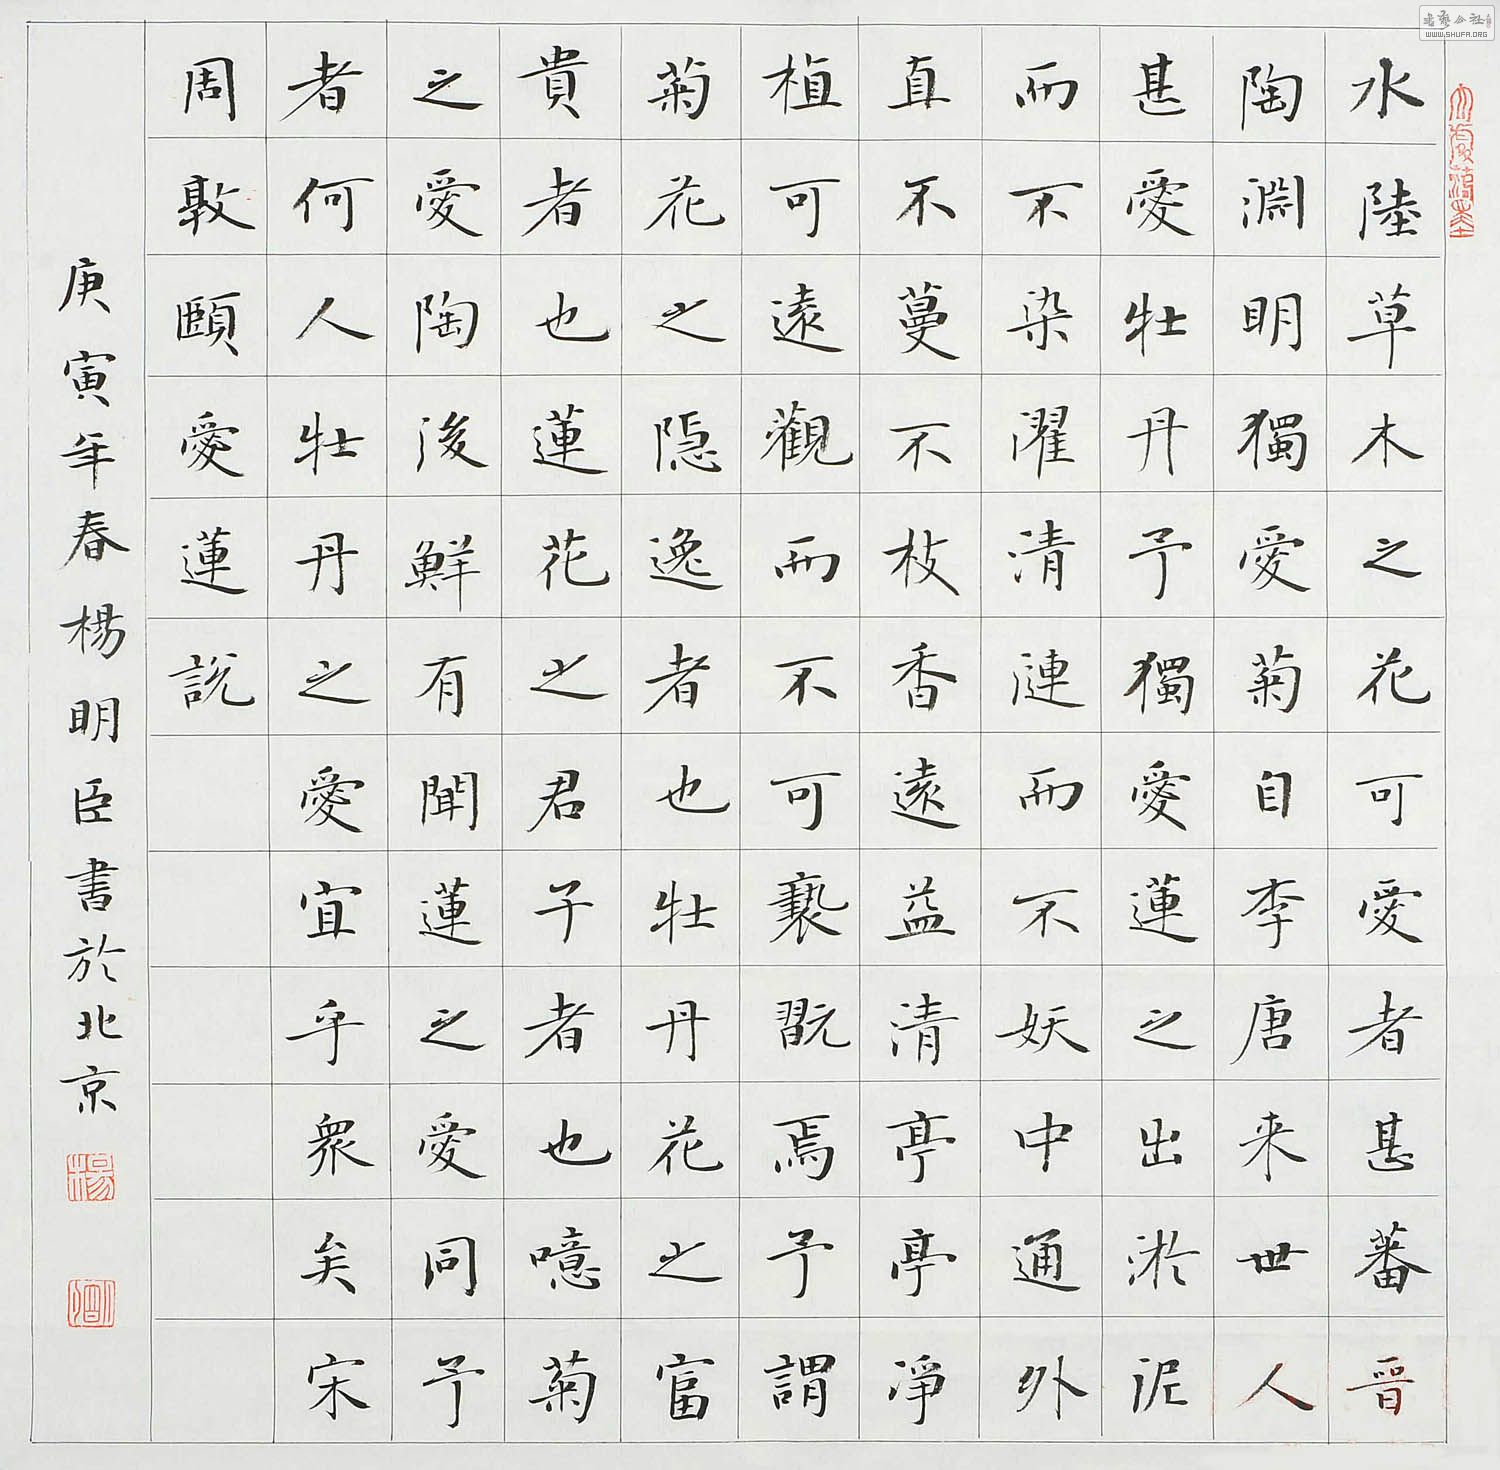 水陸草木之花可愛者甚蕃晉
陶淵明獨愛菊自李唐来世人
甚愛牡丹予獨愛蓮之出淤泥
而不染濯清漣而不妖中通外
直不蔓不枝香遠益清亭亭淨
植可遠觀而不可褻翫焉予謂
菊花之隐逸者也牡丹花之富
貴者也蓮花之君子者也噫菊
之愛陶後鮮有聞蓮之愛同予
者何人牡丹之愛宜乎眾矣宋
周敦頤愛蓮說
庚寅年春楊明臣書於北京
楊
書藝公社
WWW.SHUFA.ORG